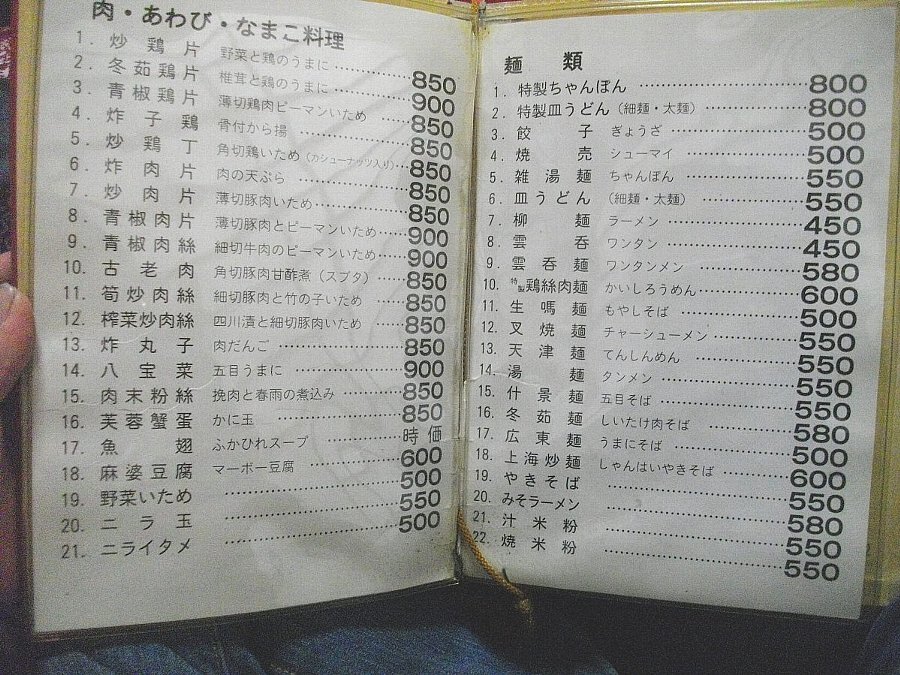 肉・あわび・なまこ料理
1. 炒鶏片 野菜と鶏のうまに 850
2. 冬茹鶏片 椎茸と鶏のうまに 900
3. 青椒鶏片 薄切鶏肉ピーマンいため 850
4. 炸子鶏 骨付から揚 850
5. 炒鶏丁 角切鶏いため(カシューナッツ入り) 850
6. 炸肉片 肉の天ぷら 850
7. 炒肉片 薄切豚肉いため 850
8. 青椒肉片 薄切豚肉とピーマンいため 900
9. 青椒肉絲 細切牛肉のピーマンいため 900
10. 古老肉 角切豚肉甘酢煮(スブタ) 850
11. 筍炒肉絲 細切豚肉と竹の子いため 850
12. 榨菜炒肉絲 四川漬と細切豚肉いため 850
13. 炸丸子 肉だんご 850
14. 八宝菜 五目うまに 900
15. 肉末粉絲 挽肉と春雨の煮込み 850
16. 芙蓉蟹蛋 かに玉 850
17. 魚翅 ふかひれスープ 時価
18. 麻婆豆腐 マーボー豆腐 600
19. 野菜いため 500
20. ニラ玉 550
21. ニライタメ 500
麺類
1. 特製ちゃんぽん 800
2. 特製皿うどん(細麺・太麺) 800
3. 餃子 ぎょうざ 500
4. 焼売 シューマイ 500
5. 雑湯麺 ちゃんぽん 550
6. 皿うどん (細麺・太麺) 550
7. 柳麺 ラーメン 450
8. 雲呑 ワンタン 450
9. 雲呑麺 ワンタンメン 580
10. 特製鶏絲肉麺 かいしろうめん 600
11. 生嗎麺 もやしそば 500
12. 叉焼麺 チャーシューメン 550
13. 天津麺 てんしんめん 550
14. 湯麺 タンメン 550
15. 什景麺 五目そば 550
16. 冬茹麺 しいたけ肉そば 580
17. 広東麺 うまにそば 500
18. 上海炒麺 しゃんはいやきそば 600
19. やきそば 550
20. みそラーメン 580
21. 汁米粉 550
22. 焼米粉 550